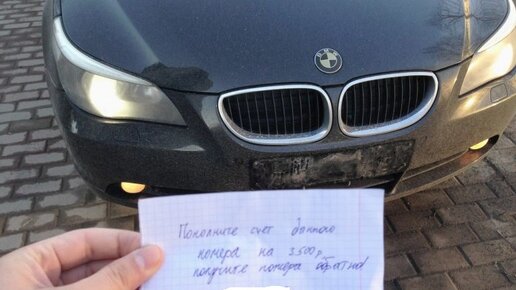 BMW
Пополните счет данного
номера на 3500р
получите номера обратно!